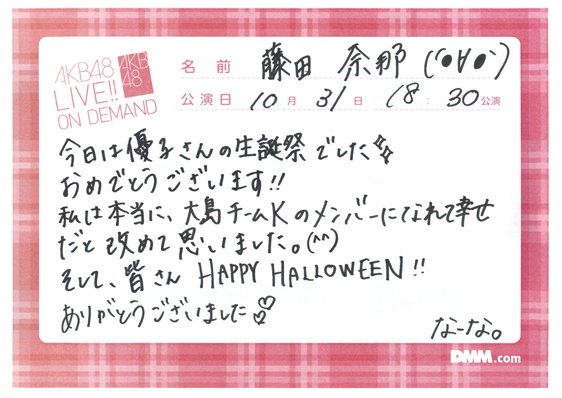 AKB48
LIVE!!
ON DEMAND
AKB
48
名前 藤田 奈那 (●'∀'●)
公演日 10月 31日 18:30公演
今日は優子さんの生誕祭でした✨
おめでとうございます!!
私は本当に、大島チームKのメンバーになれて幸せ
だと改めて思いました。(^^)
そして、皆さん HAPPY HALLOWEEN!!
ありがとうございました♡
なーな。
DMM.com